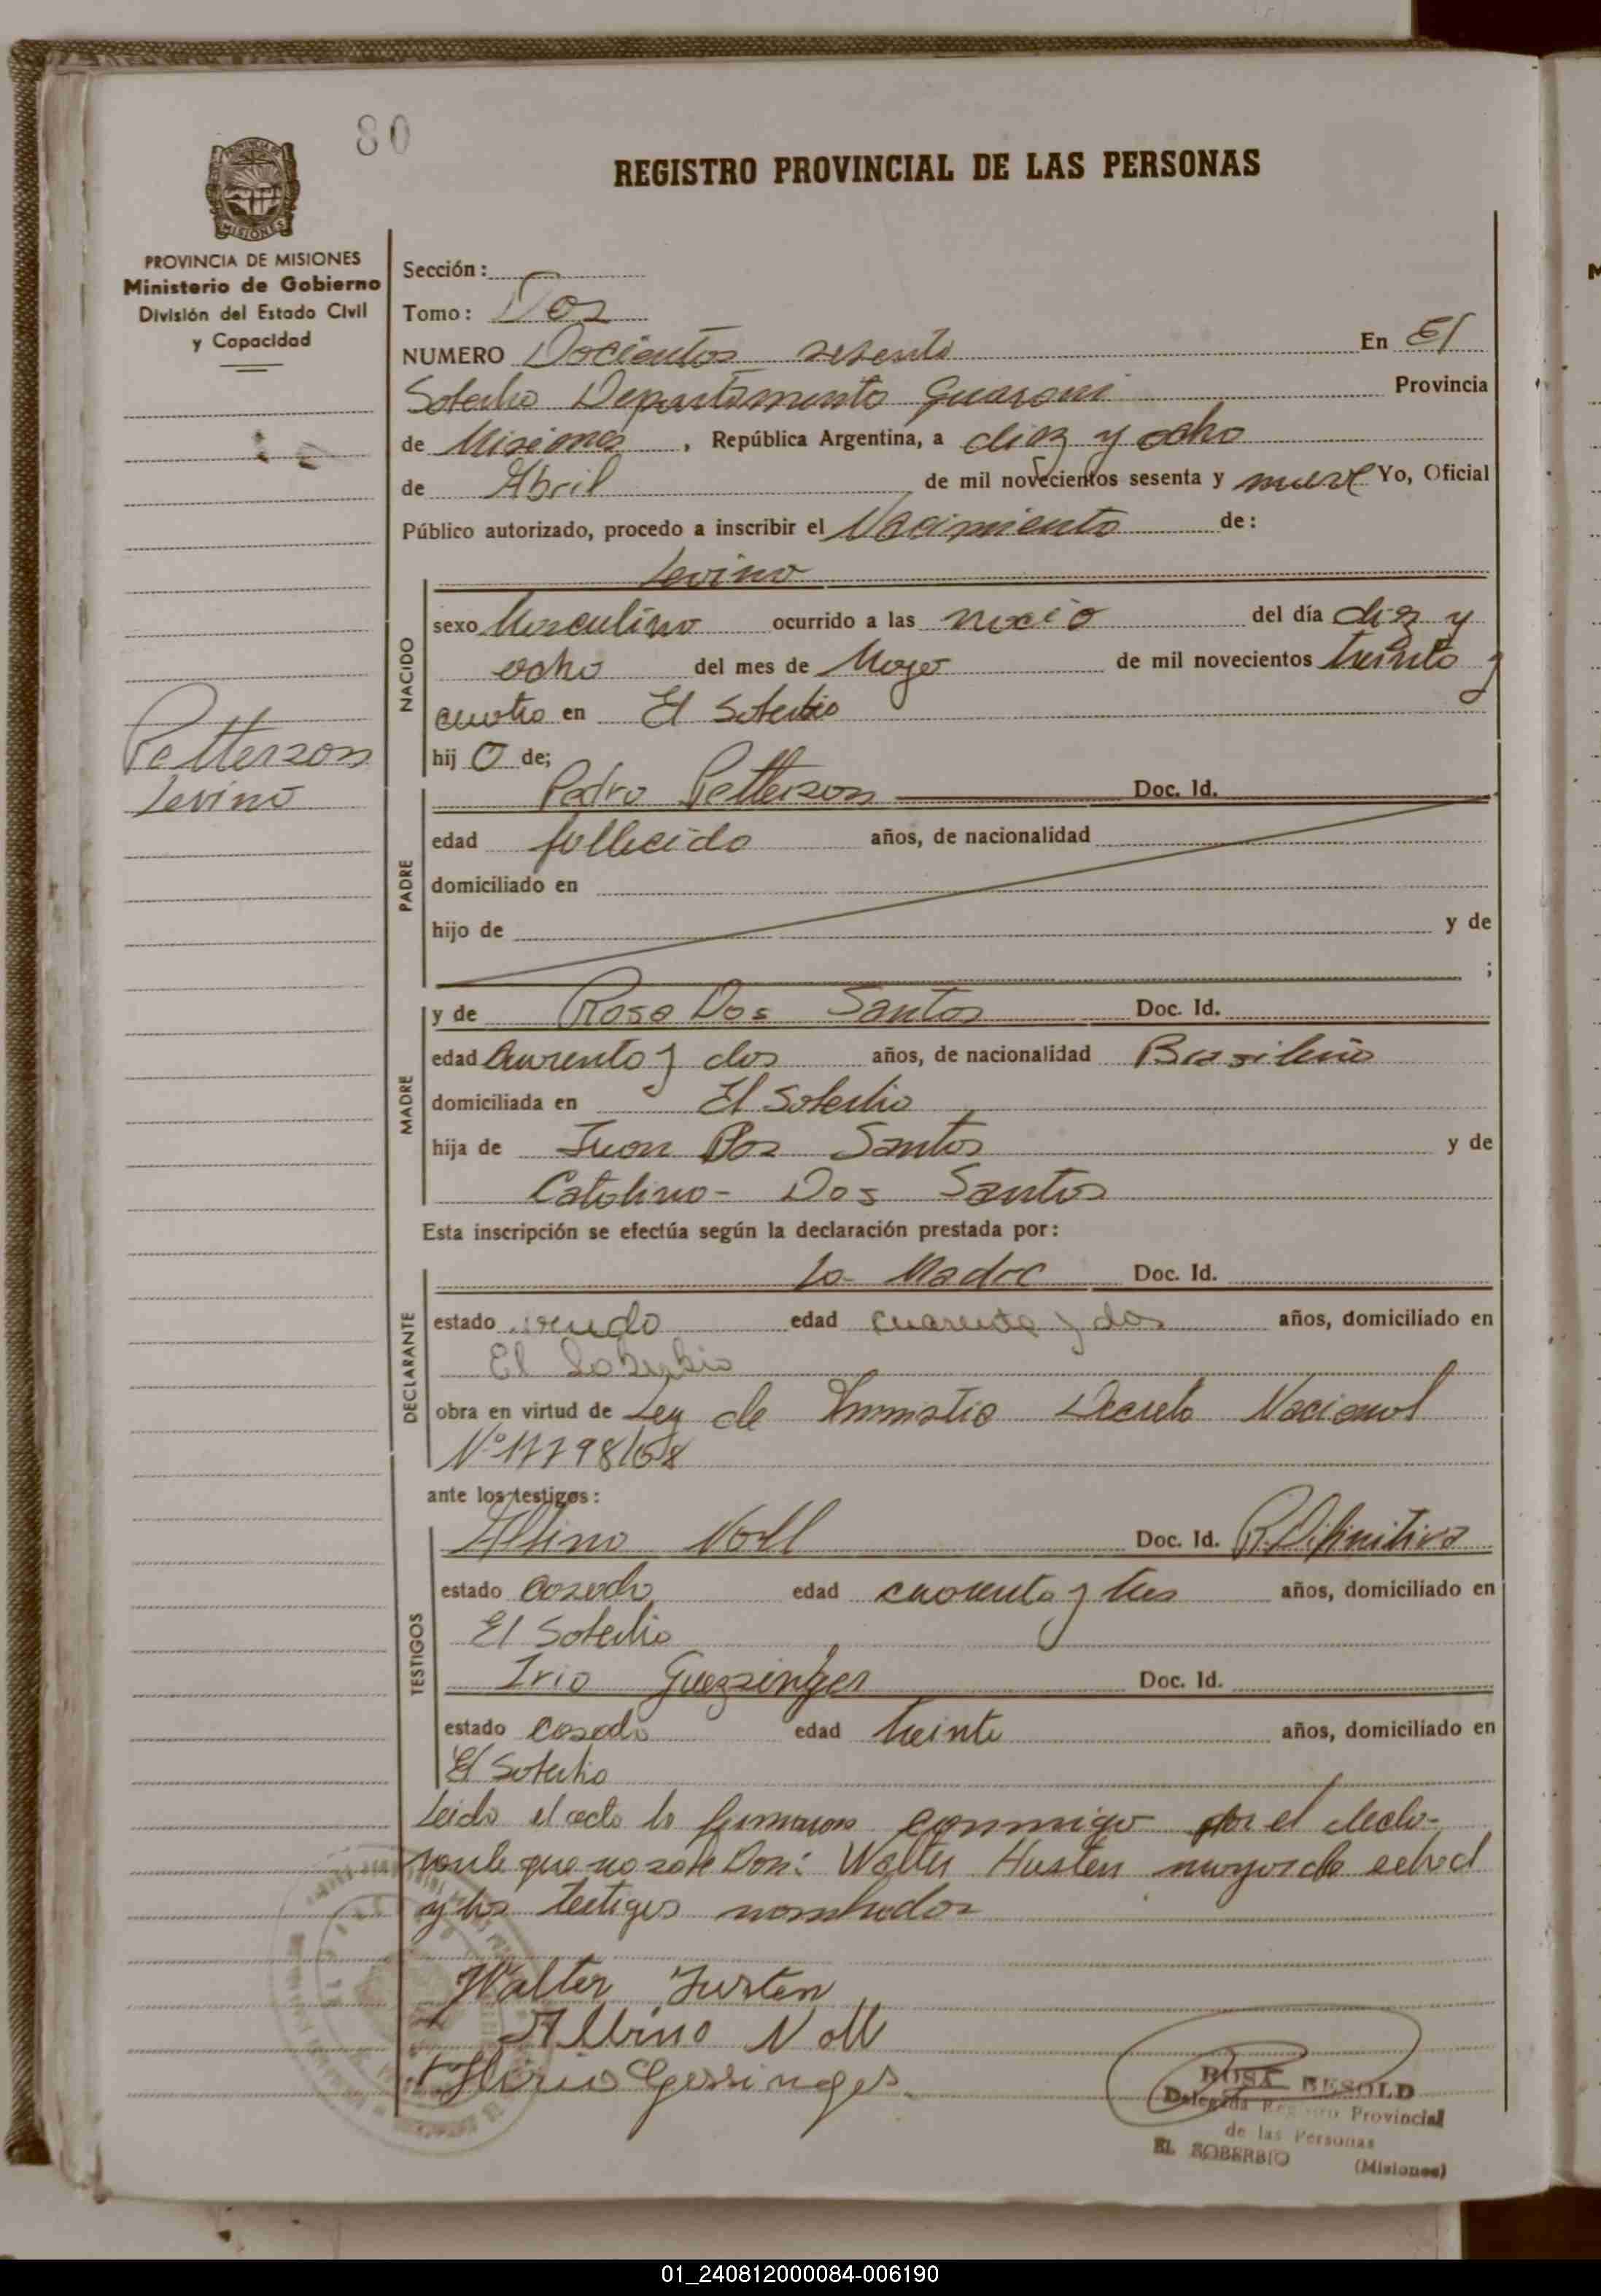 80
REGISTRO PROVINCIAL DE LAS PERSONAS
PROVINCIA DE MISIONES
Ministerio de Gobierno
División del Estado Civil
y Capacidad
Sección:
Tomo: Dos
NUMERO Docientos sesenta En El
Soberbio Departamento Guarani Provincia
de Misiones, República Argentina, a diez y ocho
de Abril de mil novecientos sesenta y nueve Yo, Oficial
Público autorizado, procedo a inscribir el Nacimiento de:
Levino
NACIDO
sexo Masculino ocurrido a las del día diez y
ocho del mes de Mayo de mil novecientos treinta y
cuatro en El Soberbio
hijo de;
Petterson
Levino
PADRE
Pedro Petterson Doc. Id.
edad fallecido años, de nacionalidad
domiciliado en
hijo de y de
;
MADRE
y de Rosa Dos Santos Doc. Id.
edad Cuarenta y dos años, de nacionalidad Brasileña
domiciliada en El Soberbio
hija de Juan Dos Santos y de
Catalina - Dos Santos
Esta inscripción se efectúa según la declaración prestada por:
DECLARANTE
La Madre Doc. Id.
estado edad cuarenta y dos años, domiciliado en
El Soberbio
obra en virtud de Ley de Amnistia Decreto Nacional
Nº 17798/68
ante los testigos:
TESTIGOS
Albino Noll Doc. Id. R. Difinitiva
estado casado edad cuarenta y tres años, domiciliado en
El Soberbio
Irio Guezzinger Doc. Id.
estado casado edad treinta años, domiciliado en
El Soberbio
Leida el acta la firmaron conmigo por el decla-
rante que no sabe Don: Walter Husten mayor de edad
y los testigos nombrados
Walter
Albino Noll
ROSA BESOLD
Delegada Registro Provincial
de las Personas
EL SOBERBIO (Misiones)
01_240812000084-006190